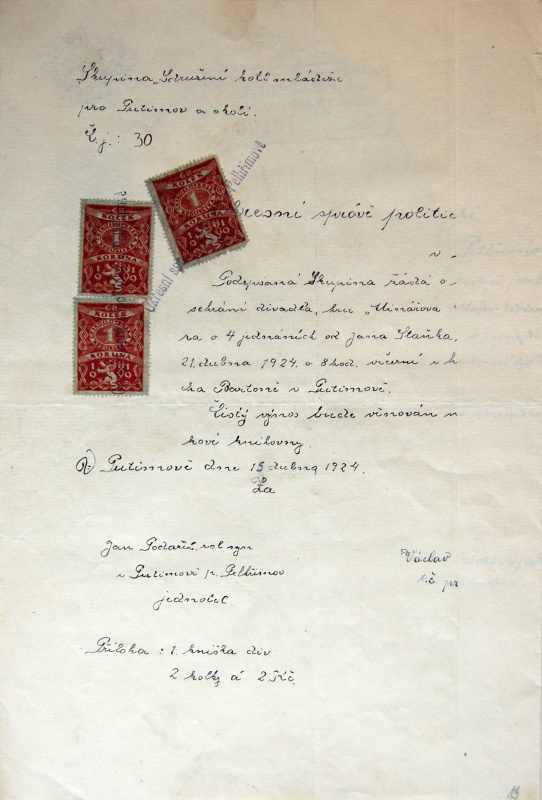 Skupina „Sdružení kat. mládeže
pro Putimov a okolí.
Č. j.: 30
Okresní správě politic
v
Podepsaná Skupina žádá o
sehrání divadla, hru
ra o 4 jednáních od Jana Staňka,
21. dubna 1924 o 8 hod. večerní v h
cha Bartoně v Putimově.
Čistý výnos bude věnován n
kové knihovny.
V Putimově dne 15 dubna 1924.
Za
Jan rol syn
v Putimově p. Pelhřimov
jednatel.
Václav
t. č. př
Příloha : 1. knížka div
2 kolky á 2 Kč.
KOLEK
1
KORUNA
1919
KOLEK
1
KORUNA
1919
KOLEK
1
KORUNA
1919
Okresní sp
Pelhřimově